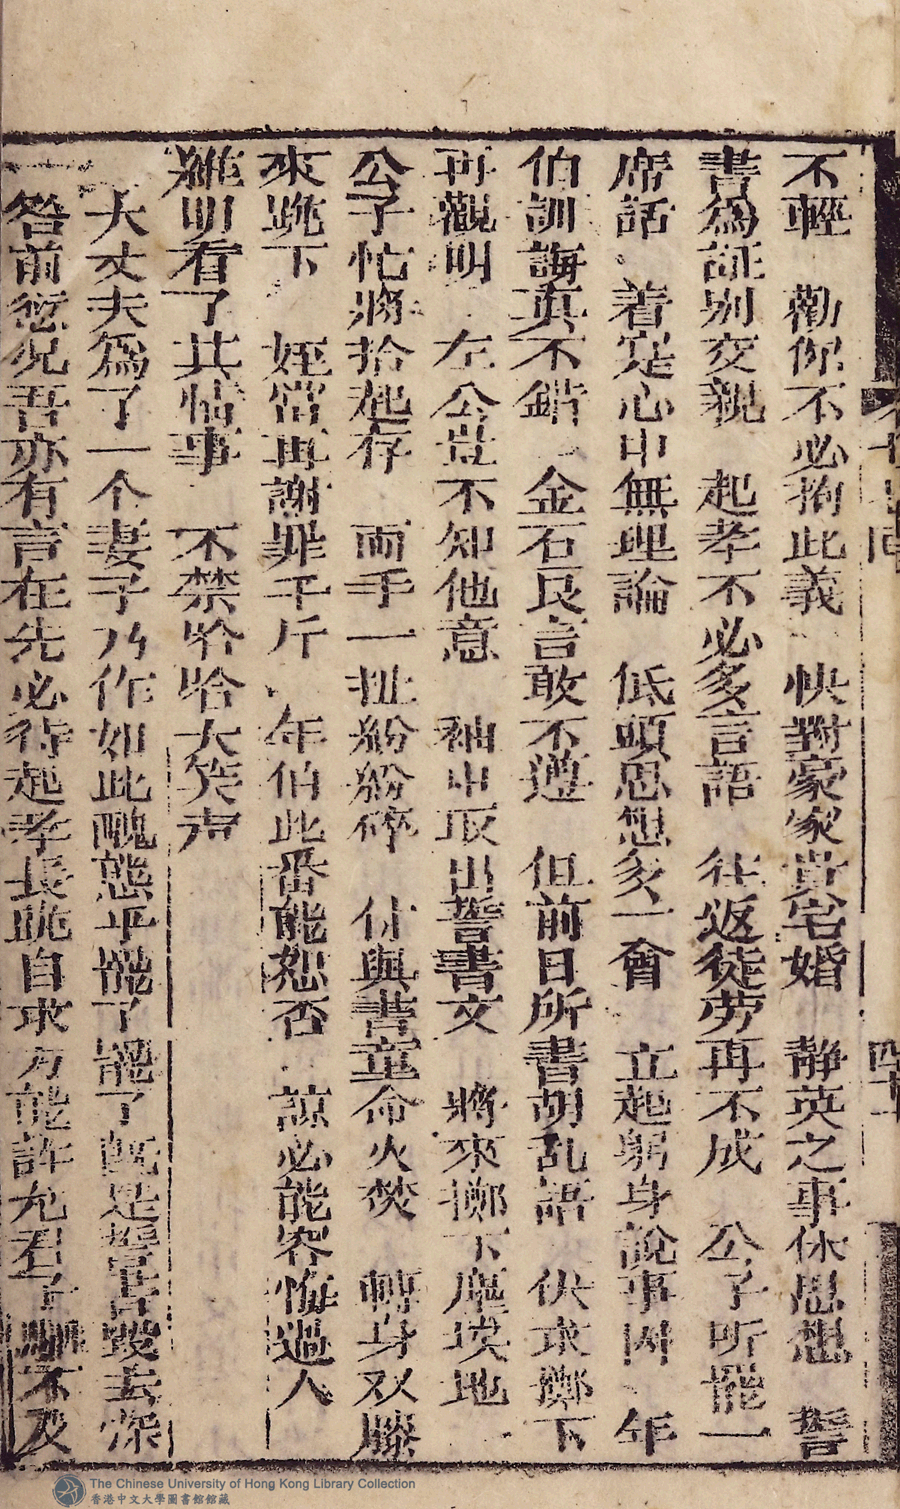 不輕　勸你不必拘此義　快對豪家貴宅婚　靜英之事休思想　誓
書爲証别交親　起孝不必多言語　往返徒劳再不成　公子听罷一
席話　着寔心中無理論　低頭思想多一會　立起躬身說事因　年
伯訓誨真不錯　金石良言敢不遵　但前日所書胡乱語　伏求擲下
再觀明　左公豈不知他意　袖中取出誓書文　將來擲下塵埃地
公子忙將拾起存　兩手一扯紛紛碎　付與書童命火焚　轉身双膝
來跪下　姪當再謝罪千斤　年伯此番能恕否　諒必能容悔過人
維明看了其情事　不禁哈哈大笑声
大丈夫爲了一个妻子乃作如此醜態乎罷了罷了旣是誓書毀去深
咎前愆况吾亦有言在先必待起孝長跪自求方能許允君子駟不及
四十一
The Chinese University of Hong Kong Library Collection
香港中文大學圖書館館藏